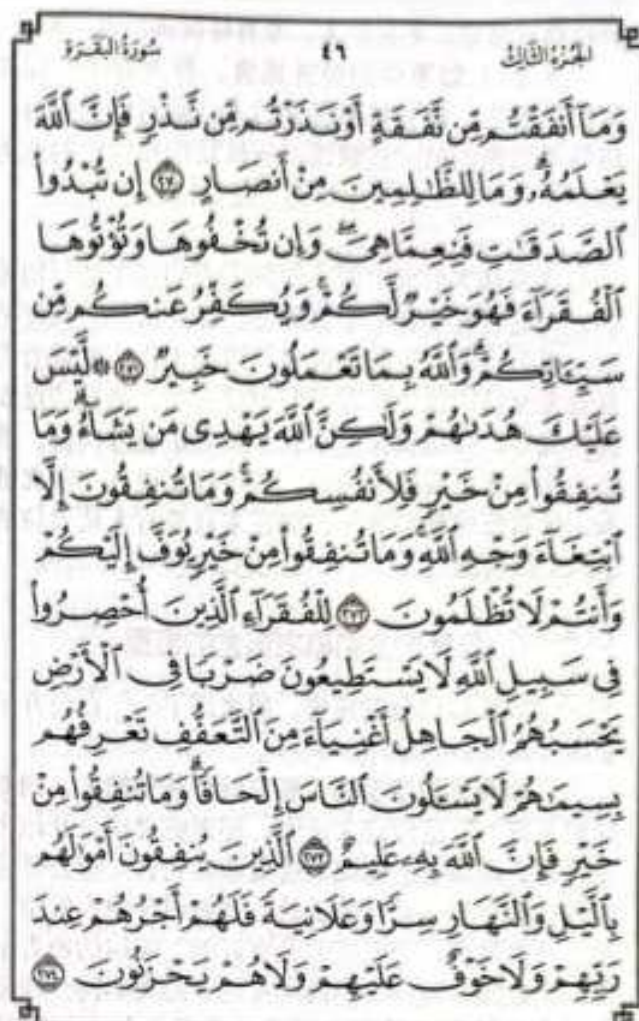 الجزء الثالث ٤٦ سورة البقرة
وَمَآ أَنفَقْتُم مِّن نَّفَقَةٍ أَوْ نَذَرْتُم مِّن نَّذْرٍ فَإِنَّ ٱللَّهَ
يَعْلَمُهُۥ ۗ وَمَا لِلظَّٰلِمِينَ مِنْ أَنصَارٍ ٢٧٠ إِن تُبْدُوا۟
ٱلصَّدَقَٰتِ فَنِعِمَّا هِىَ ۖ وَإِن تُخْفُوهَا وَتُؤْتُوهَا
ٱلْفُقَرَآءَ فَهُوَ خَيْرٌ لَّكُمْ ۚ وَيُكَفِّرُ عَنكُم مِّن
سَيِّـَٔاتِكُمْ ۗ وَٱللَّهُ بِمَا تَعْمَلُونَ خَبِيرٌ ٢٧١ ۞ لَّيْسَ
عَلَيْكَ هُدَىٰهُمْ وَلَٰكِنَّ ٱللَّهَ يَهْدِى مَن يَشَآءُ ۗ وَمَا
تُنفِقُوا۟ مِنْ خَيْرٍ فَلِأَنفُسِكُمْ ۚ وَمَا تُنفِقُونَ إِلَّا
ٱبْتِغَآءَ وَجْهِ ٱللَّهِ ۚ وَمَا تُنفِقُوا۟ مِنْ خَيْرٍ يُوَفَّ إِلَيْكُمْ
وَأَنتُمْ لَا تُظْلَمُونَ ٢٧٢ لِلْفُقَرَآءِ ٱلَّذِينَ أُحْصِرُوا۟
فِى سَبِيلِ ٱللَّهِ لَا يَسْتَطِيعُونَ ضَرْبًا فِى ٱلْأَرْضِ
يَحْسَبُهُمُ ٱلْجَاهِلُ أَغْنِيَآءَ مِنَ ٱلتَّعَفُّفِ تَعْرِفُهُم
بِسِيمَٰهُمْ لَا يَسْـَٔلُونَ ٱلنَّاسَ إِلْحَافًا ۗ وَمَا تُنفِقُوا۟ مِنْ
خَيْرٍ فَإِنَّ ٱللَّهَ بِهِۦ عَلِيمٌ ٢٧٣ ٱلَّذِينَ يُنفِقُونَ أَمْوَٰلَهُم
بِٱلَّيْلِ وَٱلنَّهَارِ سِرًّا وَعَلَانِيَةً فَلَهُمْ أَجْرُهُمْ عِندَ
رَبِّهِمْ وَلَا خَوْفٌ عَلَيْهِمْ وَلَا هُمْ يَحْزَنُونَ ٢٧٤